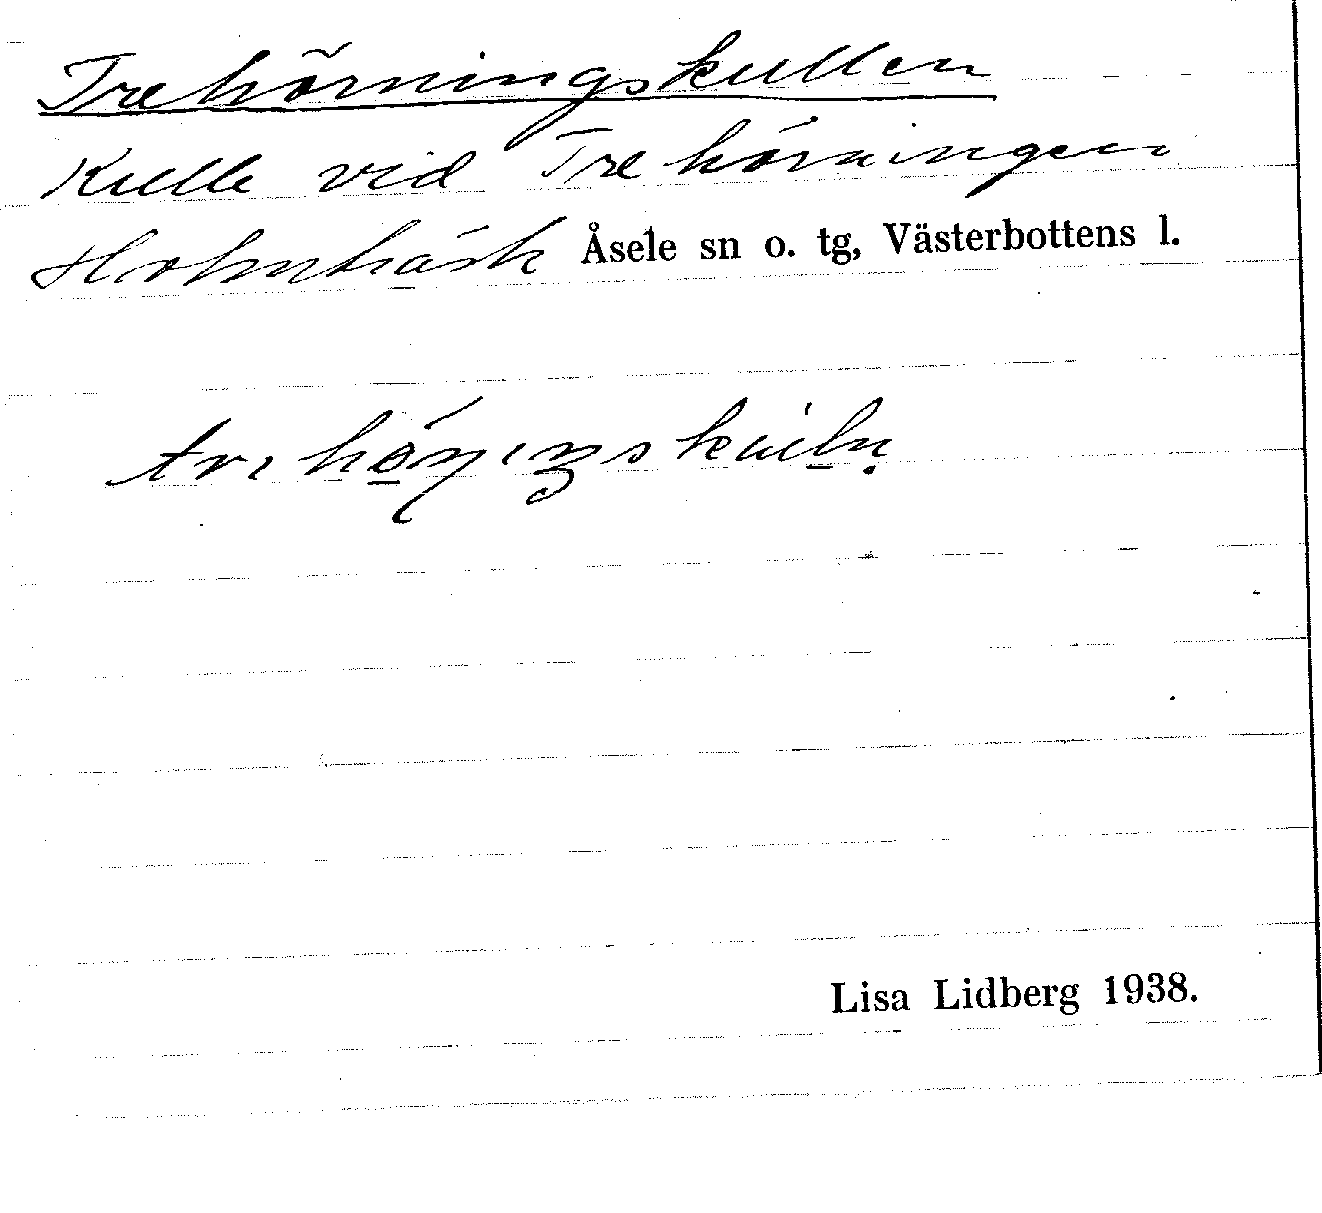 Trehörningskullen
Kulle vid Trehörningen
Holmträsk Åsele sn o. tg, Västerbottens l.
Lisa Lidberg 1938.